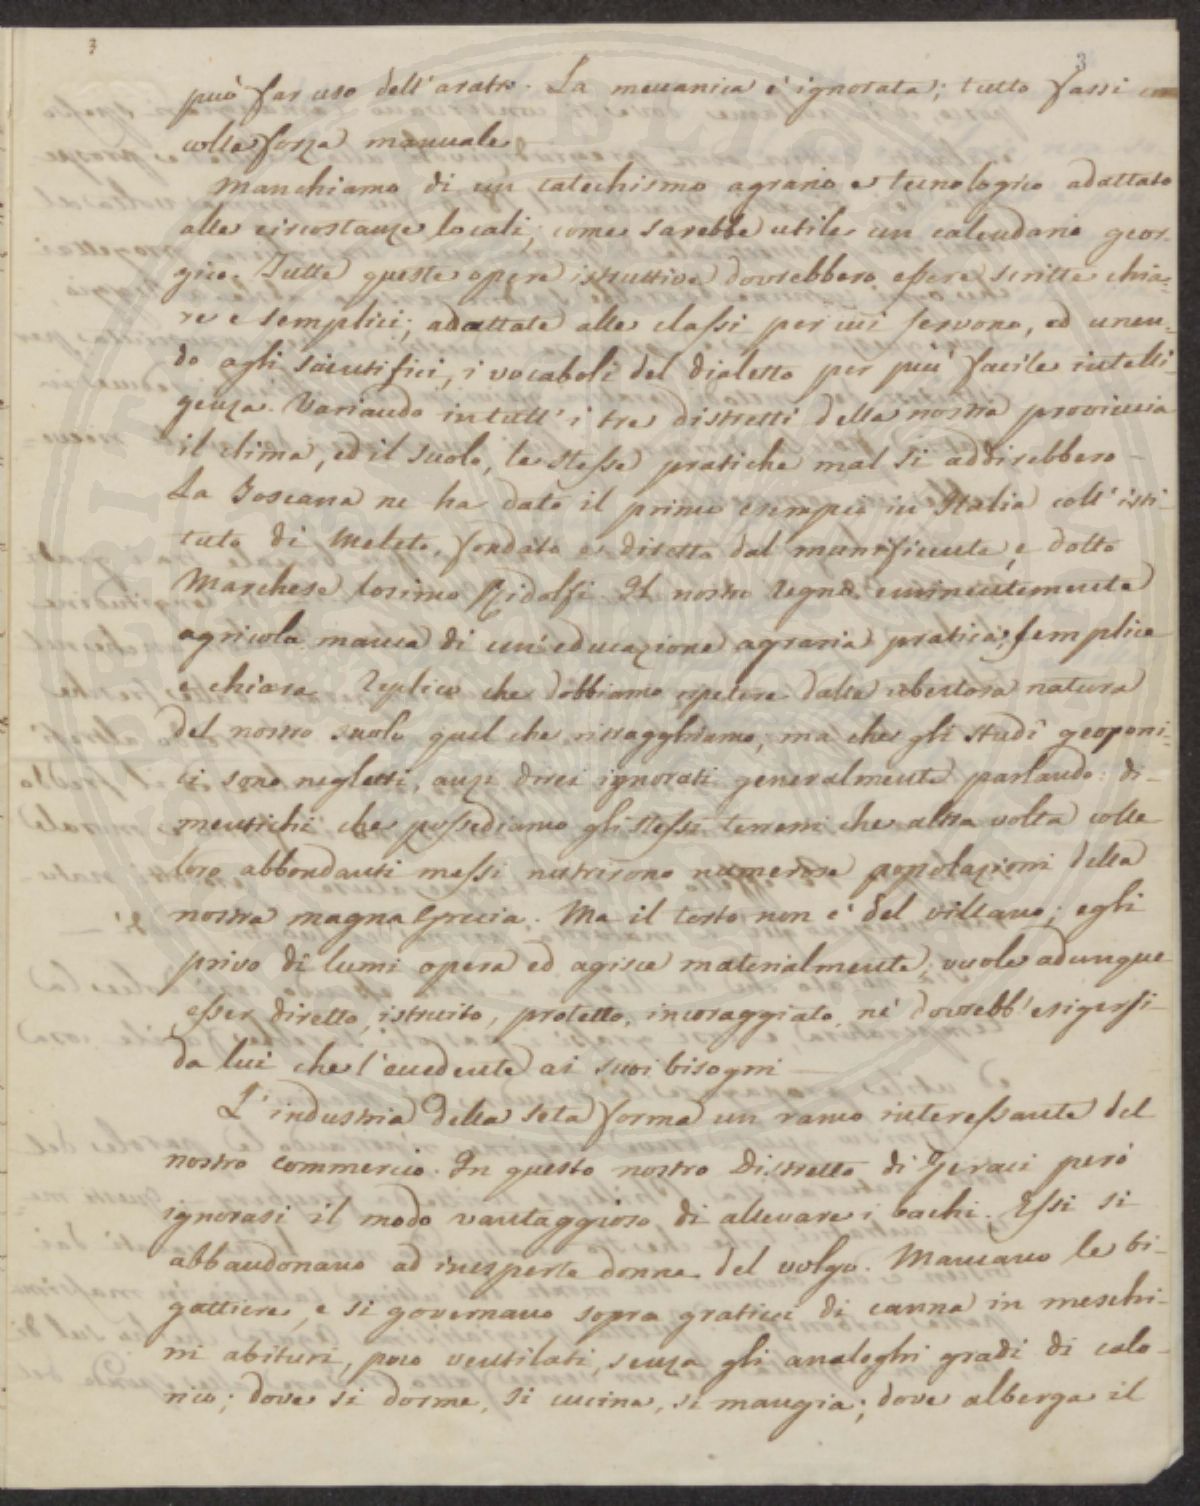 3
3
può far uso dell'aratro. La meccanica è ignorata; tutto fassi con
colla forza manuale
Manchiamo di un catechismo agrario e tecnologico adattato
alle circostanze locali, come sarebbe utile un calendario geor-
gico. Tutte queste opere istruttive dovrebbero essere scritte chia-
re e semplici; adattate alle classi per cui servono, ed unen-
do agli scientifici, i vocaboli del dialetto per più facile intelli-
genza. Variando in tutt'i tre distretti della nostra provincia
il clima, ed il suolo, le stesse pratiche mal si addirebbero —
La Toscana ne ha dato il primo esempio in Italia coll'isti-
tuto di Meleto, fondato e diretto dal munificente, e dotto
Marchese Cosimo Ridolfi. Il nostro regno eminentemente
agricola manca di un'educazione agraria pratica, semplice
e chiara. Replico che dobbiamo ripetere dalla ubertosa natura
del nostro suolo quel che raccogliamo, ma che gli studî geoponi-
ci sono negletti, anzi direi ignorati generalmente parlando: di-
mentichi che possediamo gli stessi terreni che altra volta colle
loro abbondanti messi nutrirono numerose popolazioni della
nostra magna Grecia. Ma il torto non è del villano; egli
privo di lumi opera ed agisce materialmente, vuole adunque
esser diretto, istruito, protetto, incoraggiato, nè dovrebb'esigersi
da lui che l'eccedente ai suoi bisogni —
L'industria della seta forma un ramo interessante del
nostro commercio. In questo nostro Distretto di Geraci però
ignorasi il modo vantaggioso di allevare i bachi. Essi si
abbandonano ad inesperte donne del volgo. Mancano le bi-
gattiere, e si governano sopra graticci di canna in meschi-
ni abituri, poco ventilati, senza gli analoghi gradi di calo-
rico; dove si dorme, si cucina, si mangia; dove alberga il